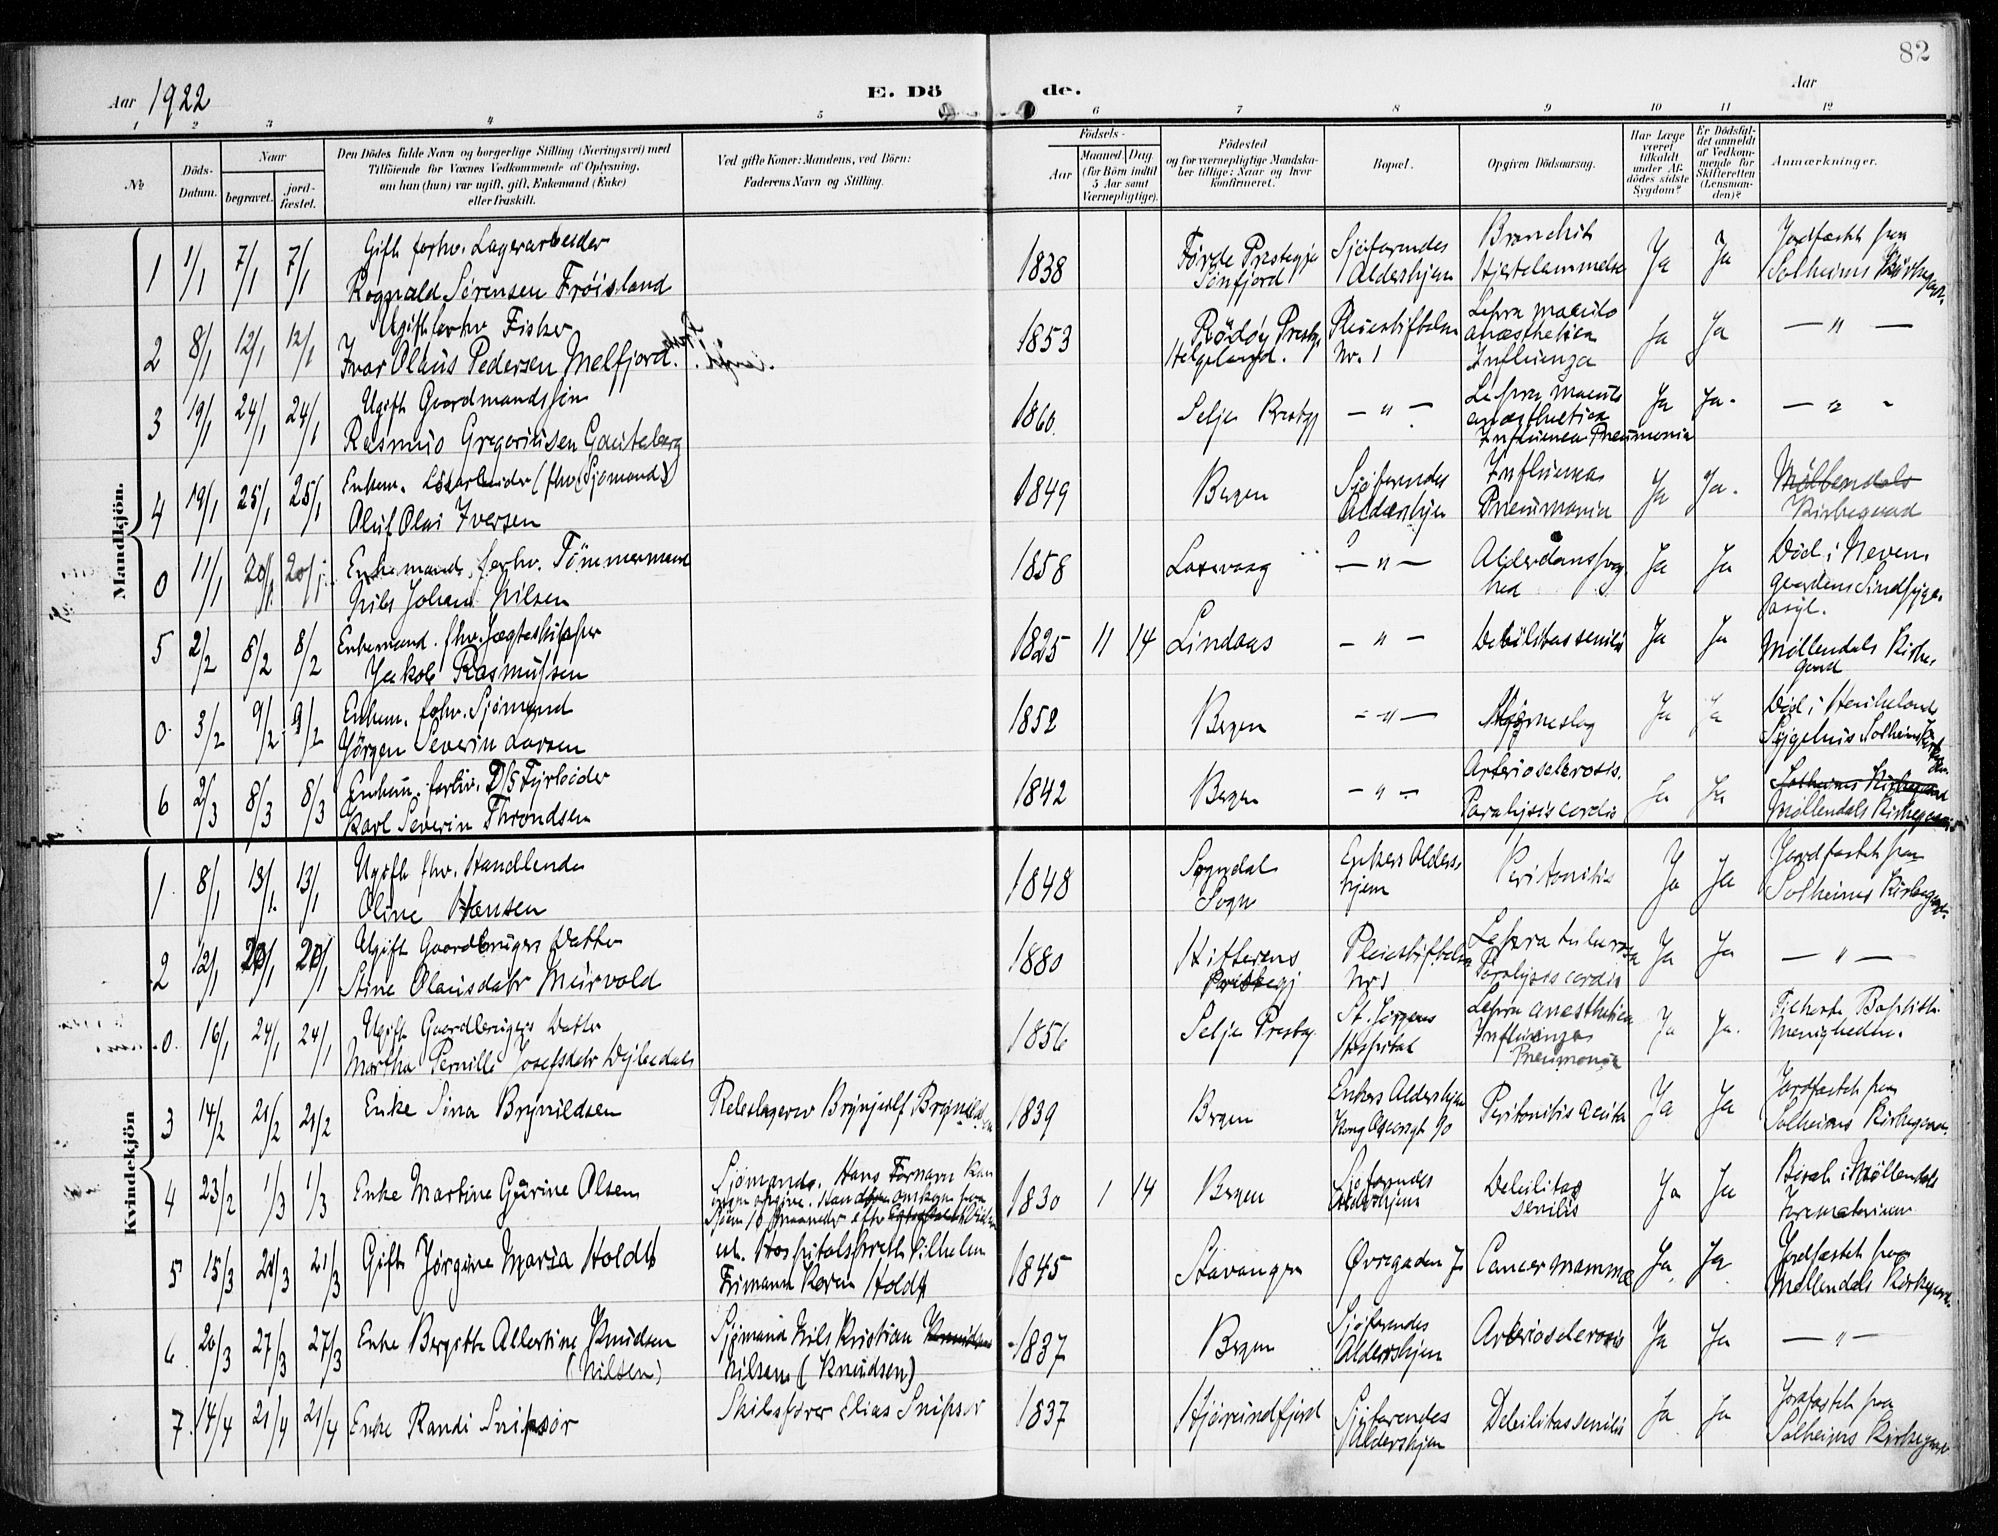 82
Aar 1922
E. Dö
de.
Aar
1 2 3 4 5 6 7 8 9 10 11 12
№
Döds-Datum.
Naar
begravet.
jord-fæstet.
Den Dödes fulde Navn og borgerlige Stilling (Næringsvei) med
Tilföiende for Voxnes Vedkommende af Oplysning,
om han (hun) var ugift, gift, Enkemand (Enke)
eller fraskilt.
Ved gifte Koner: Mandens, ved Börn:
Faderens Navn og Stilling.
Födsels-
Aar
Maaned. Dag.
(for Börn indtil
5 Aar samt
Værnepligtige).
Födested
og for værnepligtige Mandska-
ber tillige: Naar og hvor
konfirmeret.
Bopæl.
Opgiven Dödsaarsag.
Har Læge
været
tilkaldt
under Af-
dödes sidste
Sygdom?
Er Dödsfal-
det anmeldt
af Vedkom-
mende for
Skifteretten
(Lensman-
den)?
Anmærkninger.
Mandkjön.
1 1/1 7/1 7/1 Gift forhv. Lagerarbeider
Rognald Sørensen Frøisland
1838 Førde Prestegj Sønfjord Sjøfarendes Aldershjem Bronchit Hjertelammelse Ja Ja Jordfæstet fra Solheims Kirkegaard
2 8/1 12/1 12/1 Ugift forhv Fisker
Ivar Olaus Pedersen Melfjord.
1853 Rødøy Prestgj Helgeland. Pleiestiftelsen Nr. 1 Lepra maculo anæsthetica Influenza Ja Ja — " —
3 19/1 24/1 24/1 Ugift Gaardmandssøn
Rasmus Gregoriusen
1860 Selje Prestgj — " — Lepra maculo anæsthetica Influenza Pneumonia Ja Ja. — " -
4 19/1 25/1 25/1 Enkem. (fhv. Sjømand)
Oluf Olai Iversen
1849 Bergen Sjøfarendes Aldershjem Influenza Pneumonia Ja Ja. Møllendals Kirkegaard
0 11/1 20/1 20/1 Enkemand, forhv. Tömmermand
Nils Johan Nilsen
1858 Laxevaag — " — Alderdomssvaghed Ja Ja Död i Neven-
gaardens Sindssyge-
asyl.
5 2/2 8/2 8/2 Enkemand. fhv. Jægteskipper
Jakob Rasmussen
1825 11 14 Lindaas — " — Debilitas senilis Ja Ja Møllendals Kirke-
gaard
0. 3/2 9/2 9/2 Enkem. forhv. Sjømand
Jørgen Severin Larsen
1852 Bergen — " — Hjerneslag Ja Ja Død i Haukeland
Sygehus Solheims
6 2/3 8/3 8/3 Enkem. forhv. D/S Fyrbøder
Karl Severin Throndsen
1842 Bergen — " — Arteriosclerosis. Paralysis cordis Ja Ja Solheims Kirkegaard
Møllendals Kirkegaard
Kvindekjön
1. 8/1 13/1. 13/1 Ugift fhv. Handlende
Oline Hansen
1848 Sogndal Sogn Enkers Alders-
hjem Peritonitis Ja Ja Jordfæstet fra
Solheims Kirkegaard
2 12/1 20/1 20/1 Ugift Gaardbrugers Datter
Stine Olausdatr Meirvold
1880 Hitterens Prestegj Pleiestiftelsen Nr 1 Lepra tuberosa Paralysis cordis Ja Ja — " —
0. 16/1 24/1 24/1 Ugift Gaardbrugers Datter
Martha Pernille Josefsdatr
1856 Selje Prestgj St. Jørgens Hospital Lepra anæsthetica Influenza Pneumonia Ja Ja. Tilhørte Baptist-
Menigheden.
3 14/2 21/2 21/2 Enke Sina Brynildsen Rebslager Brynjulf Brynildsen
1839 Bergen Enkers Aldershjem Kong Oscarsgt 90 Peritonitis acuta Ja Ja Jordfæstet fra
Solheims Kirkegaard.
4 23/2 1/3 1/3 Enke Martine Gurine Olsen Sjømand. Hans Fornavn kan
ingen opgive.
1830 1 14 Bergen Sjøfarendes Aldershjem Debilitas senilis Ja Ja Bisat i Møllendals
Krematorium
5 15/3 21/3 21/3 Gift Jørgine Maria Holdt
Frimann Holdt
1845 Stavanger Øvregaden 7 Cancer mammæ Ja. Ja Jordfæstet fra
Møllendals Kirkegaard.
6 20/3 27/3 27/3 Enke Bergitte Albertine Knudsen
(Nilsen)
Sjømand Nils Kristian Knudsen
Nilsen (Knudsen)
1837 Bergen Sjøfarendes Aldershjem Arteriosclerosis Ja Ja — " —
7. 14/4 21/4 21/4 Enke Randi Snipsør Skibsfører Elias Snipsør
1837 Hjørundfjord Sjøfarendes Aldershjem Debilitas senilis Ja Ja Jordfæstet fra
Solheims Kirkegaard